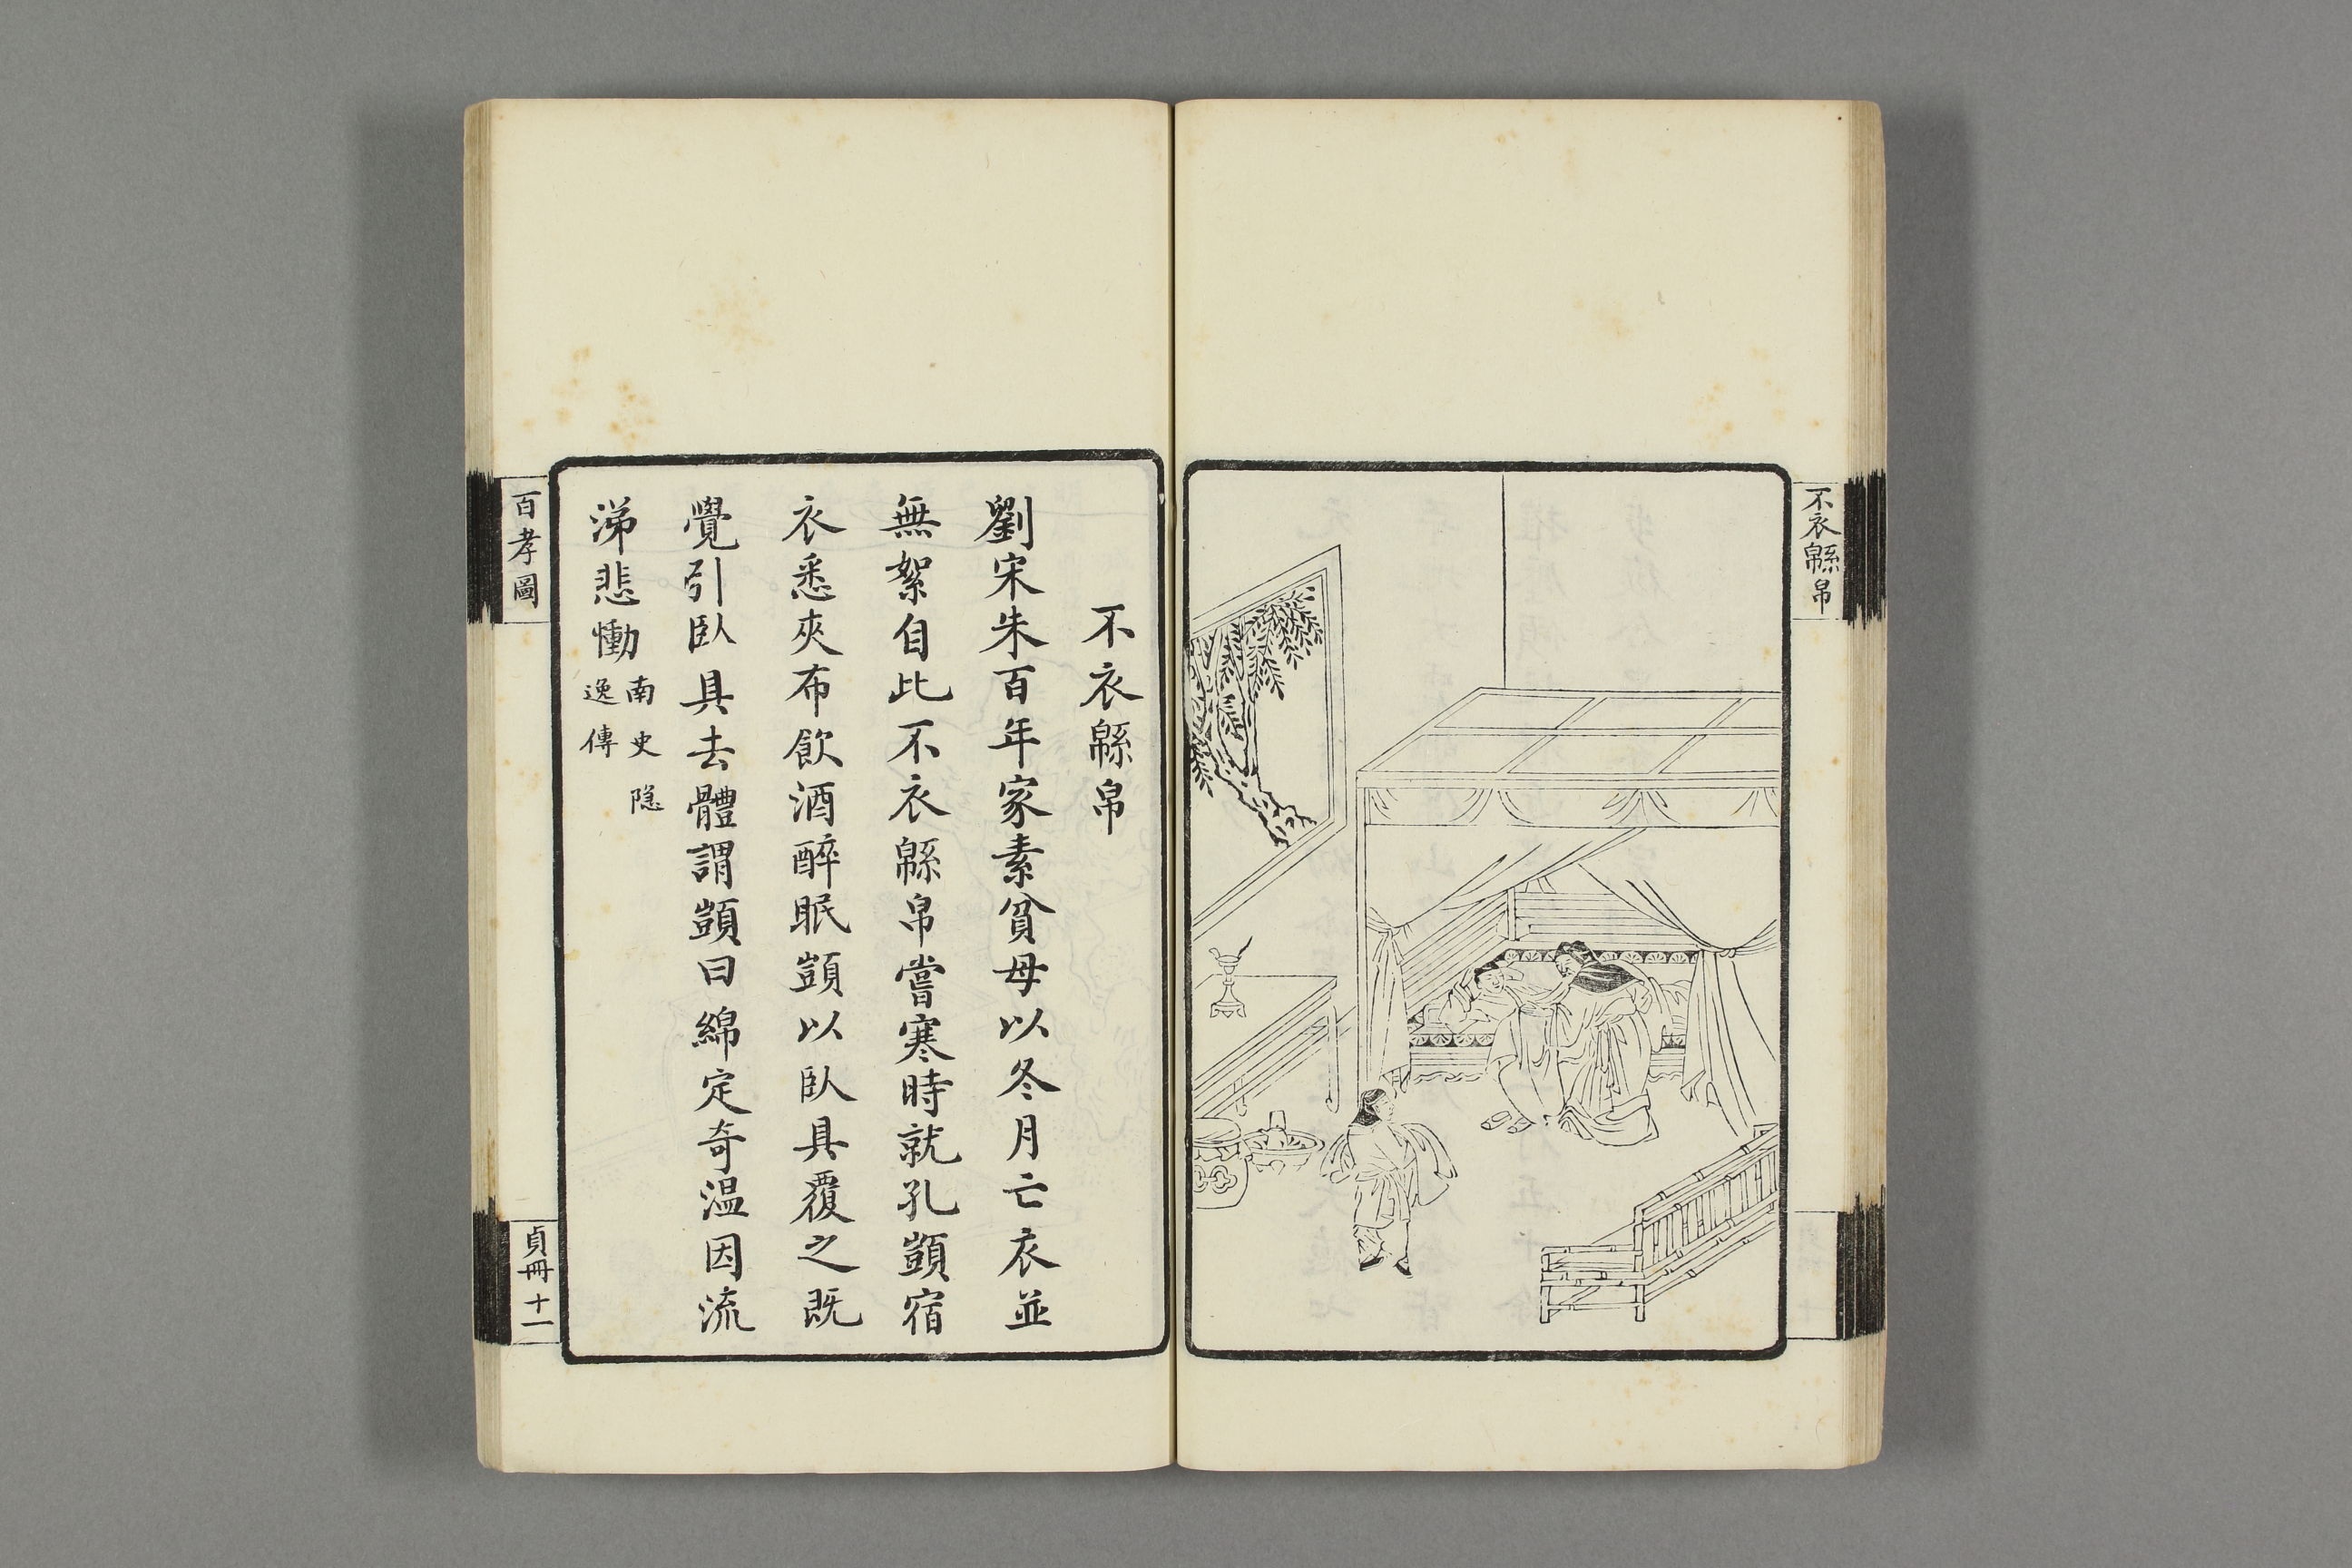 不衣緜帛
不衣緜帛
劉宋朱百年家素貧母以冬月亡衣並
無絮自此不衣緜帛嘗寒時就孔顗宿
衣悉夾布飲酒醉眠顗以臥具覆之既
覺引臥具去體謂顗曰綿定奇溫因流
涕悲慟
南史隐
逸傳
百孝圖
貞冊 十一